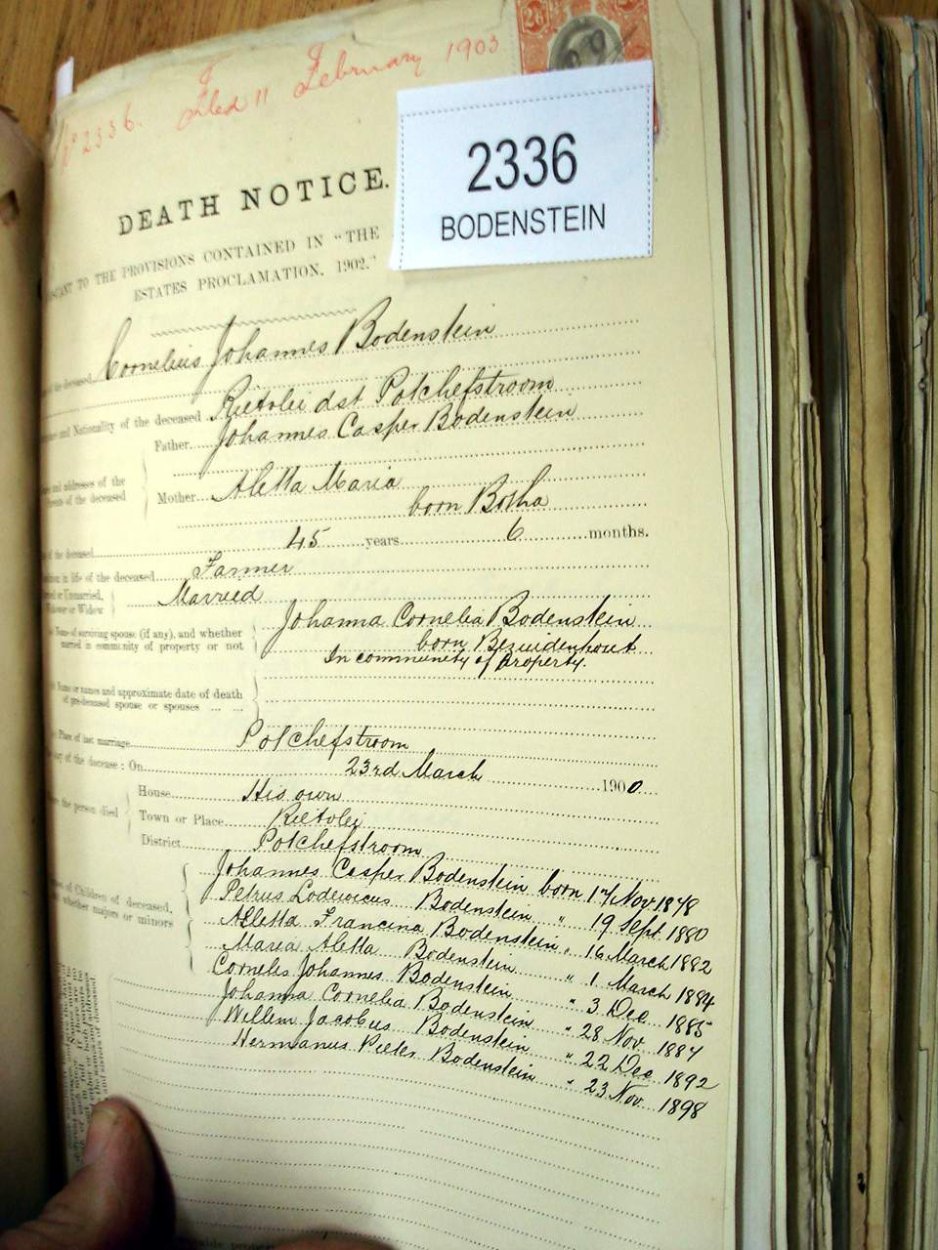 No 2336. Filed 11 February 1903
2/6
2336
BODENSTEIN
DEATH NOTICE.
TO THE PROVISIONS CONTAINED IN "THE
ESTATES PROCLAMATION, 1902."
the deceased Cornelius Johannes Bodenstein
and Nationality of the deceased Rietvlei dst Potchefstroom
Father Johannes Casper Bodenstein
and addresses of the
of the deceased
Mother Aletta Maria
born Botha
of the deceased 45 years 6 months.
in life of the deceased Farmer
or Unmarried,
Widower or Widow
Married
Name of surviving spouse (if any), and whether
married in community of property or not
Johanna Cornelia Bodenstein
born Bezuidenhout
In community of property
Name or names and approximate date of death
of pre-deceased spouse or spouses ... ...
Place of last marriage Potchefstroom
of the decease : On 23rd March 1900
the person died
House His own
Town or Place Rietvlei
District Potchefstroom
of Children of deceased,
whether majors or minors
Johannes Casper Bodenstein born 17 Nov 1878
Petrus Lodewicus Bodenstein " 19 Sept. 1880
Alletta Francina Bodenstein " 16 March 1882
Maria Aletta Bodenstein " 1 March 1884
Cornelis Johannes Bodenstein " 3 Dec 1885
Johanna Cornelia Bodenstein " 28 Nov 1887
Willem Jacobus Bodenstein " 22 Dec 1892
Hermanus Pieter Bodenstein " 23 Nov 1898